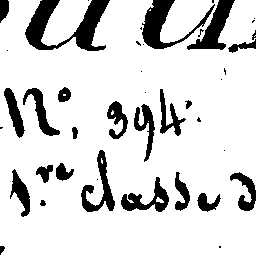 N°. 394.
1.re classe d